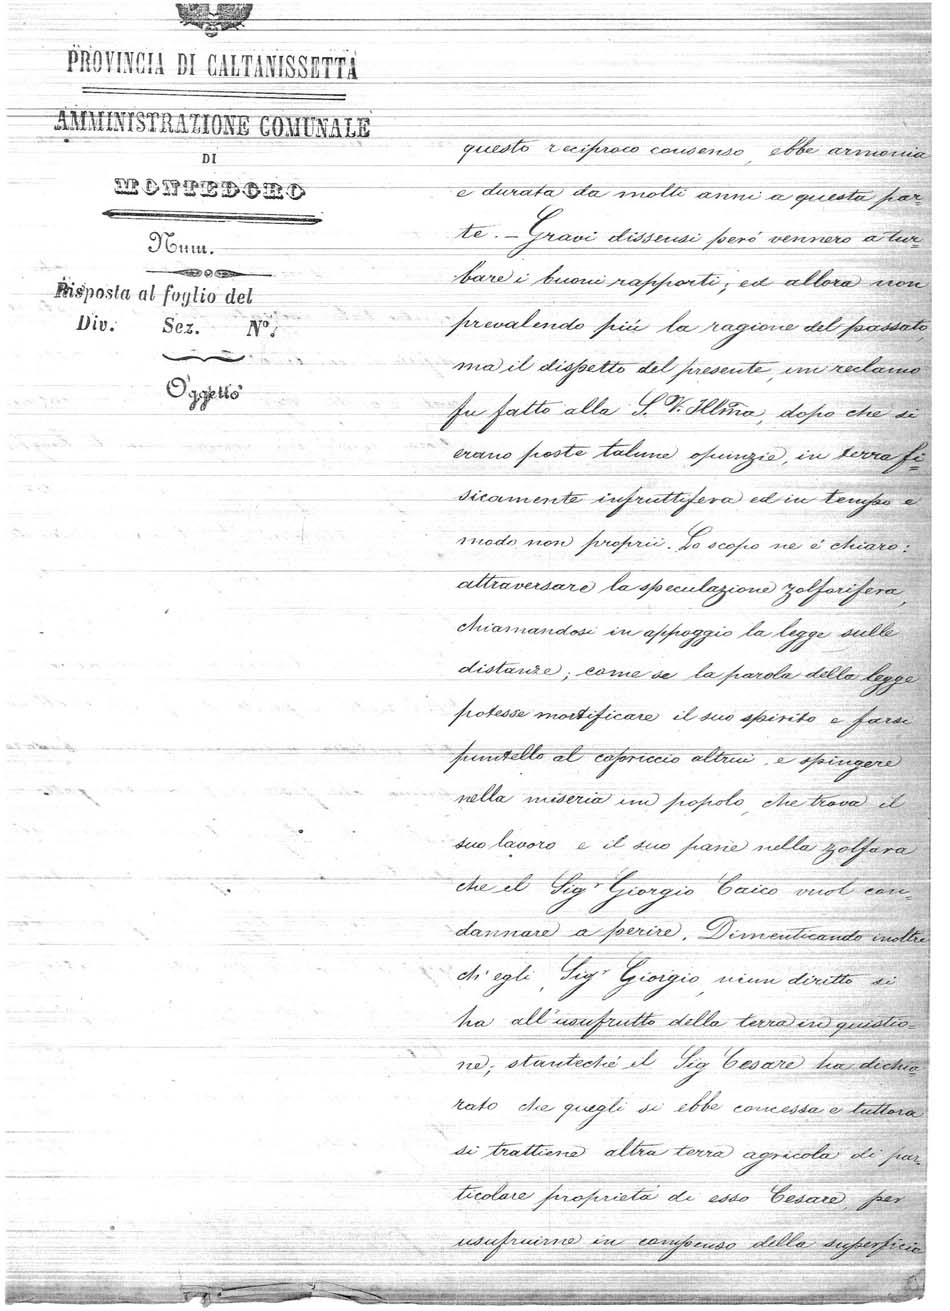 PROVINCIA DI CALTANISSETTA
AMMINISTRAZIONE COMUNALE
DI
MONTEDORO
Num.
Risposta al foglio del
Div. Sez. Nº.
Oggetto
questo reciproco consenso, ebbe armonia
e durata da molti anni a questa par-
te. — Gravi dissensi peró vennero a tur-
bare i buoni rapporti; ed allora non
prevalendo piú la ragione del passato,
ma il dispetto del presente, un reclamo
fu fatto alla S. V. Illma, dopo che si
erano poste talune opunzie, in terra fi-
sicamente infruttifera ed in tempo e
modo non proprii. Lo scopo ne é chiaro:
attraversare la speculazione zolforifera,
chiamandosi in appoggio la legge sulle
distanze; come se la parola della legge
potesse mortificare il suo spirito e farsi
puntello al capriccio altrui, e spingere
nella miseria un popolo, che trova il
suo lavoro e il suo pane nella zolfara
che il Sigr Giorgio Caico vuol con-
dannare a perire. Dimenticando inoltre
ch'egli, Sigr Giorgio, niun diritto si
ha all'usufrutto della terra in quistio-
ne; stanteché il Sig Cesare ha dichia-
rato che quegli si ebbe concessa e tuttora
si trattiene altra terra agricola di par-
ticolare proprietá di esso Cesare, per
usufruirne in compenso della superficie